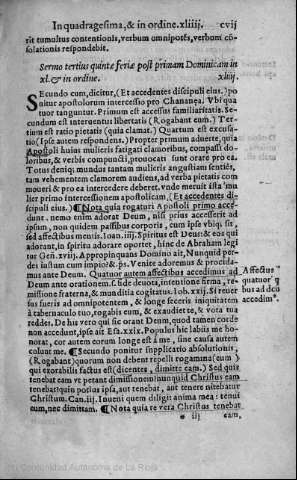 In quadragesima, & in ordine. xliiij. cvij
rit tumultus contentionis, verbum omnipotēs, verbum cō
solationis respondebit.
Sermo tertius quintæ feriæ post primam Dominicam in
xl. & in ordine. xliiij.
SEcundo cum, dicitur, (Et accedentes discipuli eius.) po
nitur apostolorum intercessio pro Chananea. Vbi qua
tuor tanguntur. Primum est accessus familiaritatis. Se-
cundum est interuentus libertatis (Rogabant eum.) Ter-
tium est ratio pietatis (quia clamat.) Quartum est excusa-
tio (Ipse autem respondens.) Propter primum aduerte, quia
Apostoli huius mulieris fatigati clamoribus, compassi do-
loribus, & verbis compuncti, prouocati sunt orare pro ea.
Totus deniq; mundus tantam mulieris angustiam sentiēs,
tam vehementem clamorem audiens, ad verba pietatis com
moueri & pro ea intercedere deberet. vnde meruit ista mu
lier primo intercessionem apostolicam (Et accedentes di-
scipuli eius.) ¶ Nota quia rogaturi Apostoli primo acce-
dunt. nemo enim adorat Deum, nisi prius accesserit ad
ipsum, non quidem passibus corporis, cum ipse vbiq; sit,
sed affectibus mentis. Ioan. iiij. Spiritus est Deus: & eos qui
adorant, in spiritu adorare oportet, hinc de Abraham legi
tur Gen. xviij. Appropinquans Domino ait, Nunquid per-
des iustum cum impio? & ps. Venite adoremus & procida-
mus ante Deum. Quatuor autem affectibus accedimus ad
Deum ante orationem. Fide deuota, intentione firma, re-
missione fraterna, & munditia cogitatus. Iob. xxij. Si reuer
sus fueris ad omnipotentem, & longe feceris iniquitatem
à tabernaculo tuo, rogabis eum, & exaudiet te, & vota tua
reddes. De his vero qui sic orant Deum, quod tamen corde
non accedunt, ipse ait Esa. xxix. Populus hic labijs me ho-
norat, cor autem eorum longe est à me, sine causa autem
colunt me. ¶ Secundo ponitur supplicatio absolutionis
(Rogabant) quorum non debent repelli rogamina (eum)
qui exorabilis factus est (dicentes, dimitte eam.) Sed quis
tenebat eam vt petant dimissionem? nunquid Christus eam
tenebat? quin potius ipsa, aut tenebat, aut tenere nitebatur
Christum. Can. iij. Inueni quem diligit anima mea: tenui
eum, nec dimittam. ¶ Nota quia re vera Christus tenebat
iij eam,
Affectus
quatuor q̄
bus ad deū
accedimꝰ
Comunidad Autónoma de La Rioja